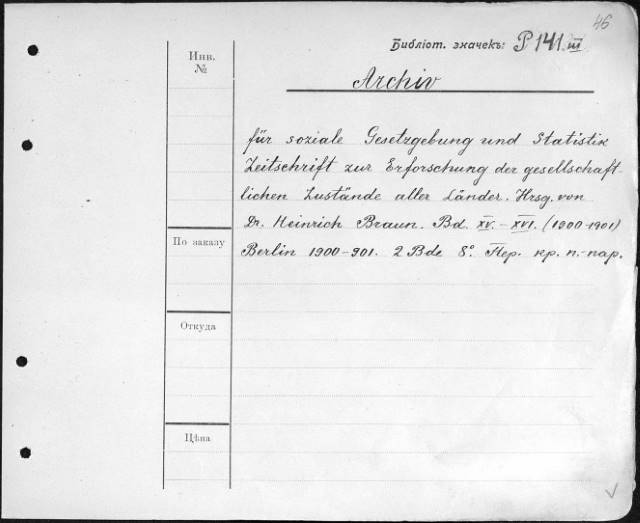 46
Библіот. значекъ: P 141.III
Инв.
№
Archiv
für soziale Gesetzgebung und Statistik
Zeitschrift zur Erforschung der gesellschaft-
lichen Zustände aller Länder. Hrsg. von
Dr. Heinrich Braun. Bd. XV.-XVI. (1900-1901)
По заказу
Berlin 1900-901. 2 Bde 8°. Пер. кр. п.-пар.
Откуда
Цѣна